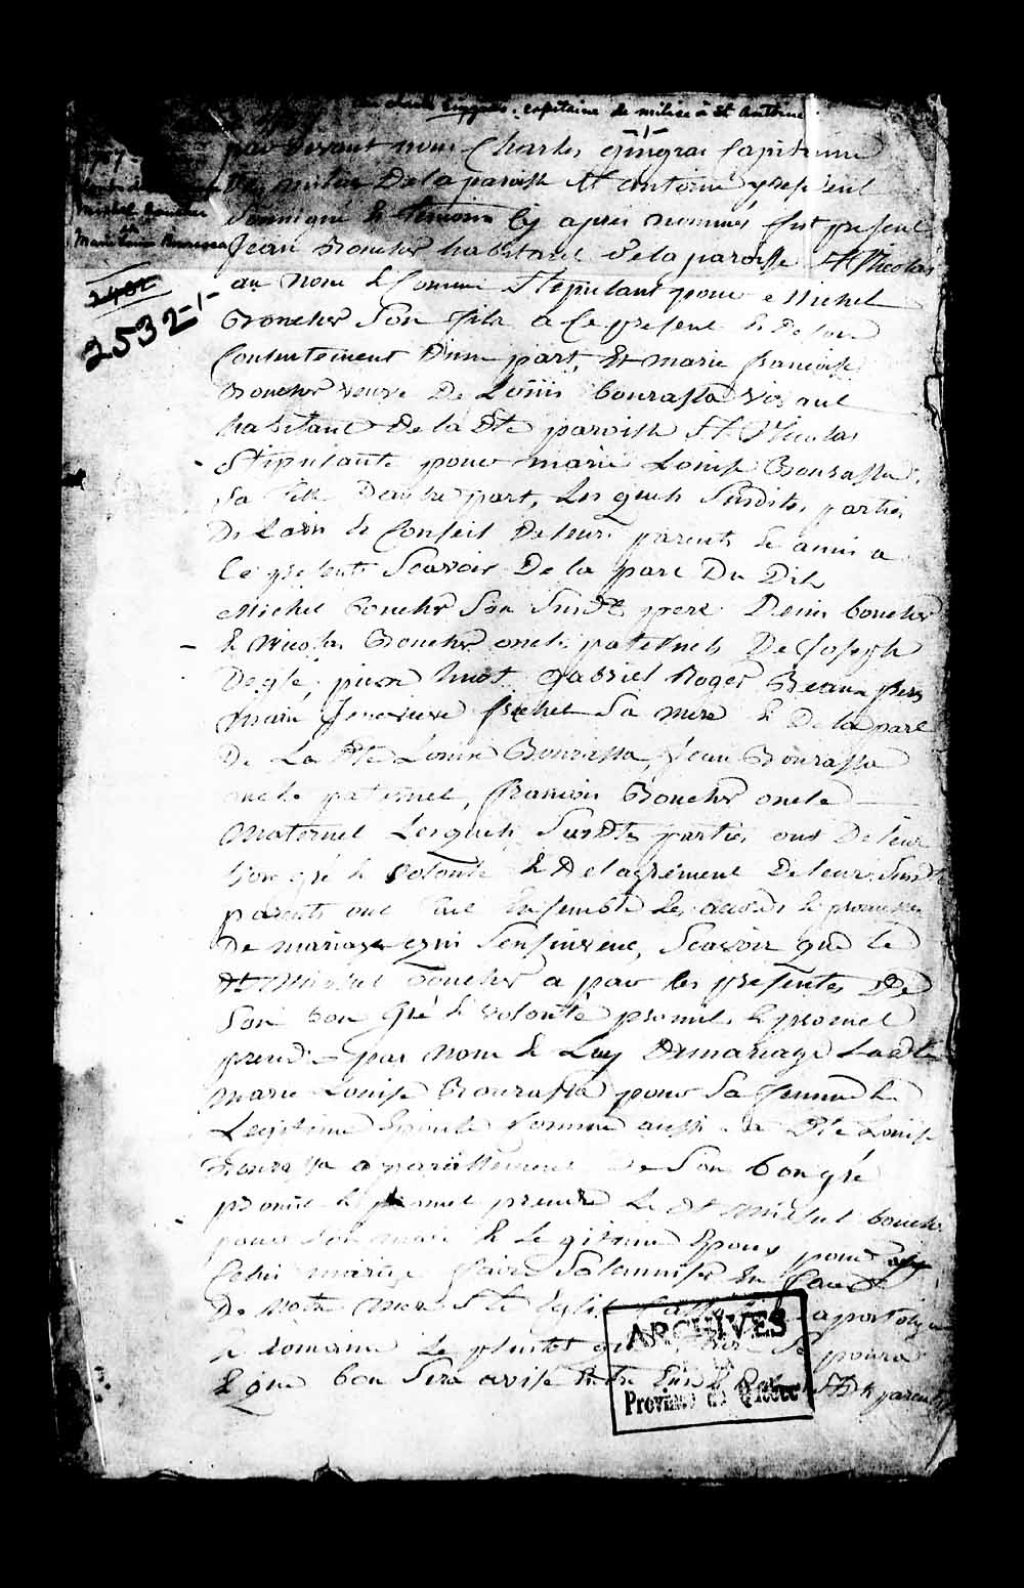 capitaine de milice à St Antoine
par devant nous Charles gingras Capitenne
De milice De la paroisse St antoine
Soussigné & temoins Cy apres nommés fut present
Michel Boucher
&
Marie Louise Bourassa
Jean Boucher habitant de la paroisse St Nicolas
2532-1-
au nom & Comme Stepulant pour Michel
Boucher Son fils a Ce present & De son
Consentement D'une part, Et marie francoise
Boucher veuve De Loüis bourassa vivant
habitant De la Dte paroisse St Nicolas
Stipulante pour marie Louise Bourassa
Sa fille D'autre part, Les quels Susdites parties
De Lavis & Conseil De leurs parents & amis a
Ce presents Scavoir De la part Du Dit
Michel boucher Son Susdt pere Denis boucher
& Nicolas Boucher oncle paternels De Joseph
pierre huot Gabriel Roger Beaux freres
Genevieve frichet Sa mere & De la part
De La Dte Louise Bourassa, Jean Bourassa
oncle paternel, francois Boucher oncle
Maternel Lesquels Susdtes parties ont De leur
bon gré & volonté & De lagrément De leurs Susdts
parents ont fait Ensemble les accords & promesses
De mariage qui Sensuivent, Scavoir que le
Dt Michel Boucher a par les presentes De
Son bon gré & volonté promis & promet
prendre par nom & Loy De mariage Ladte
Marie Louise Bourassa pour Sa femme &
Legitime Epouse Comme aussi la Dte Louise
Bourassa apareillement De Son bon gré
promis & promet prendre le Dt Michel boucher
pour Son mari & Legitime Epoux pour
Celui mariage faire Solemniser En face
De notre mere Ste Eglise apostolique
& romaine Le plustot que faire Se poura
& que bon Sera avisé Entre Eux & parents
ARCHIVES
Province de Québec